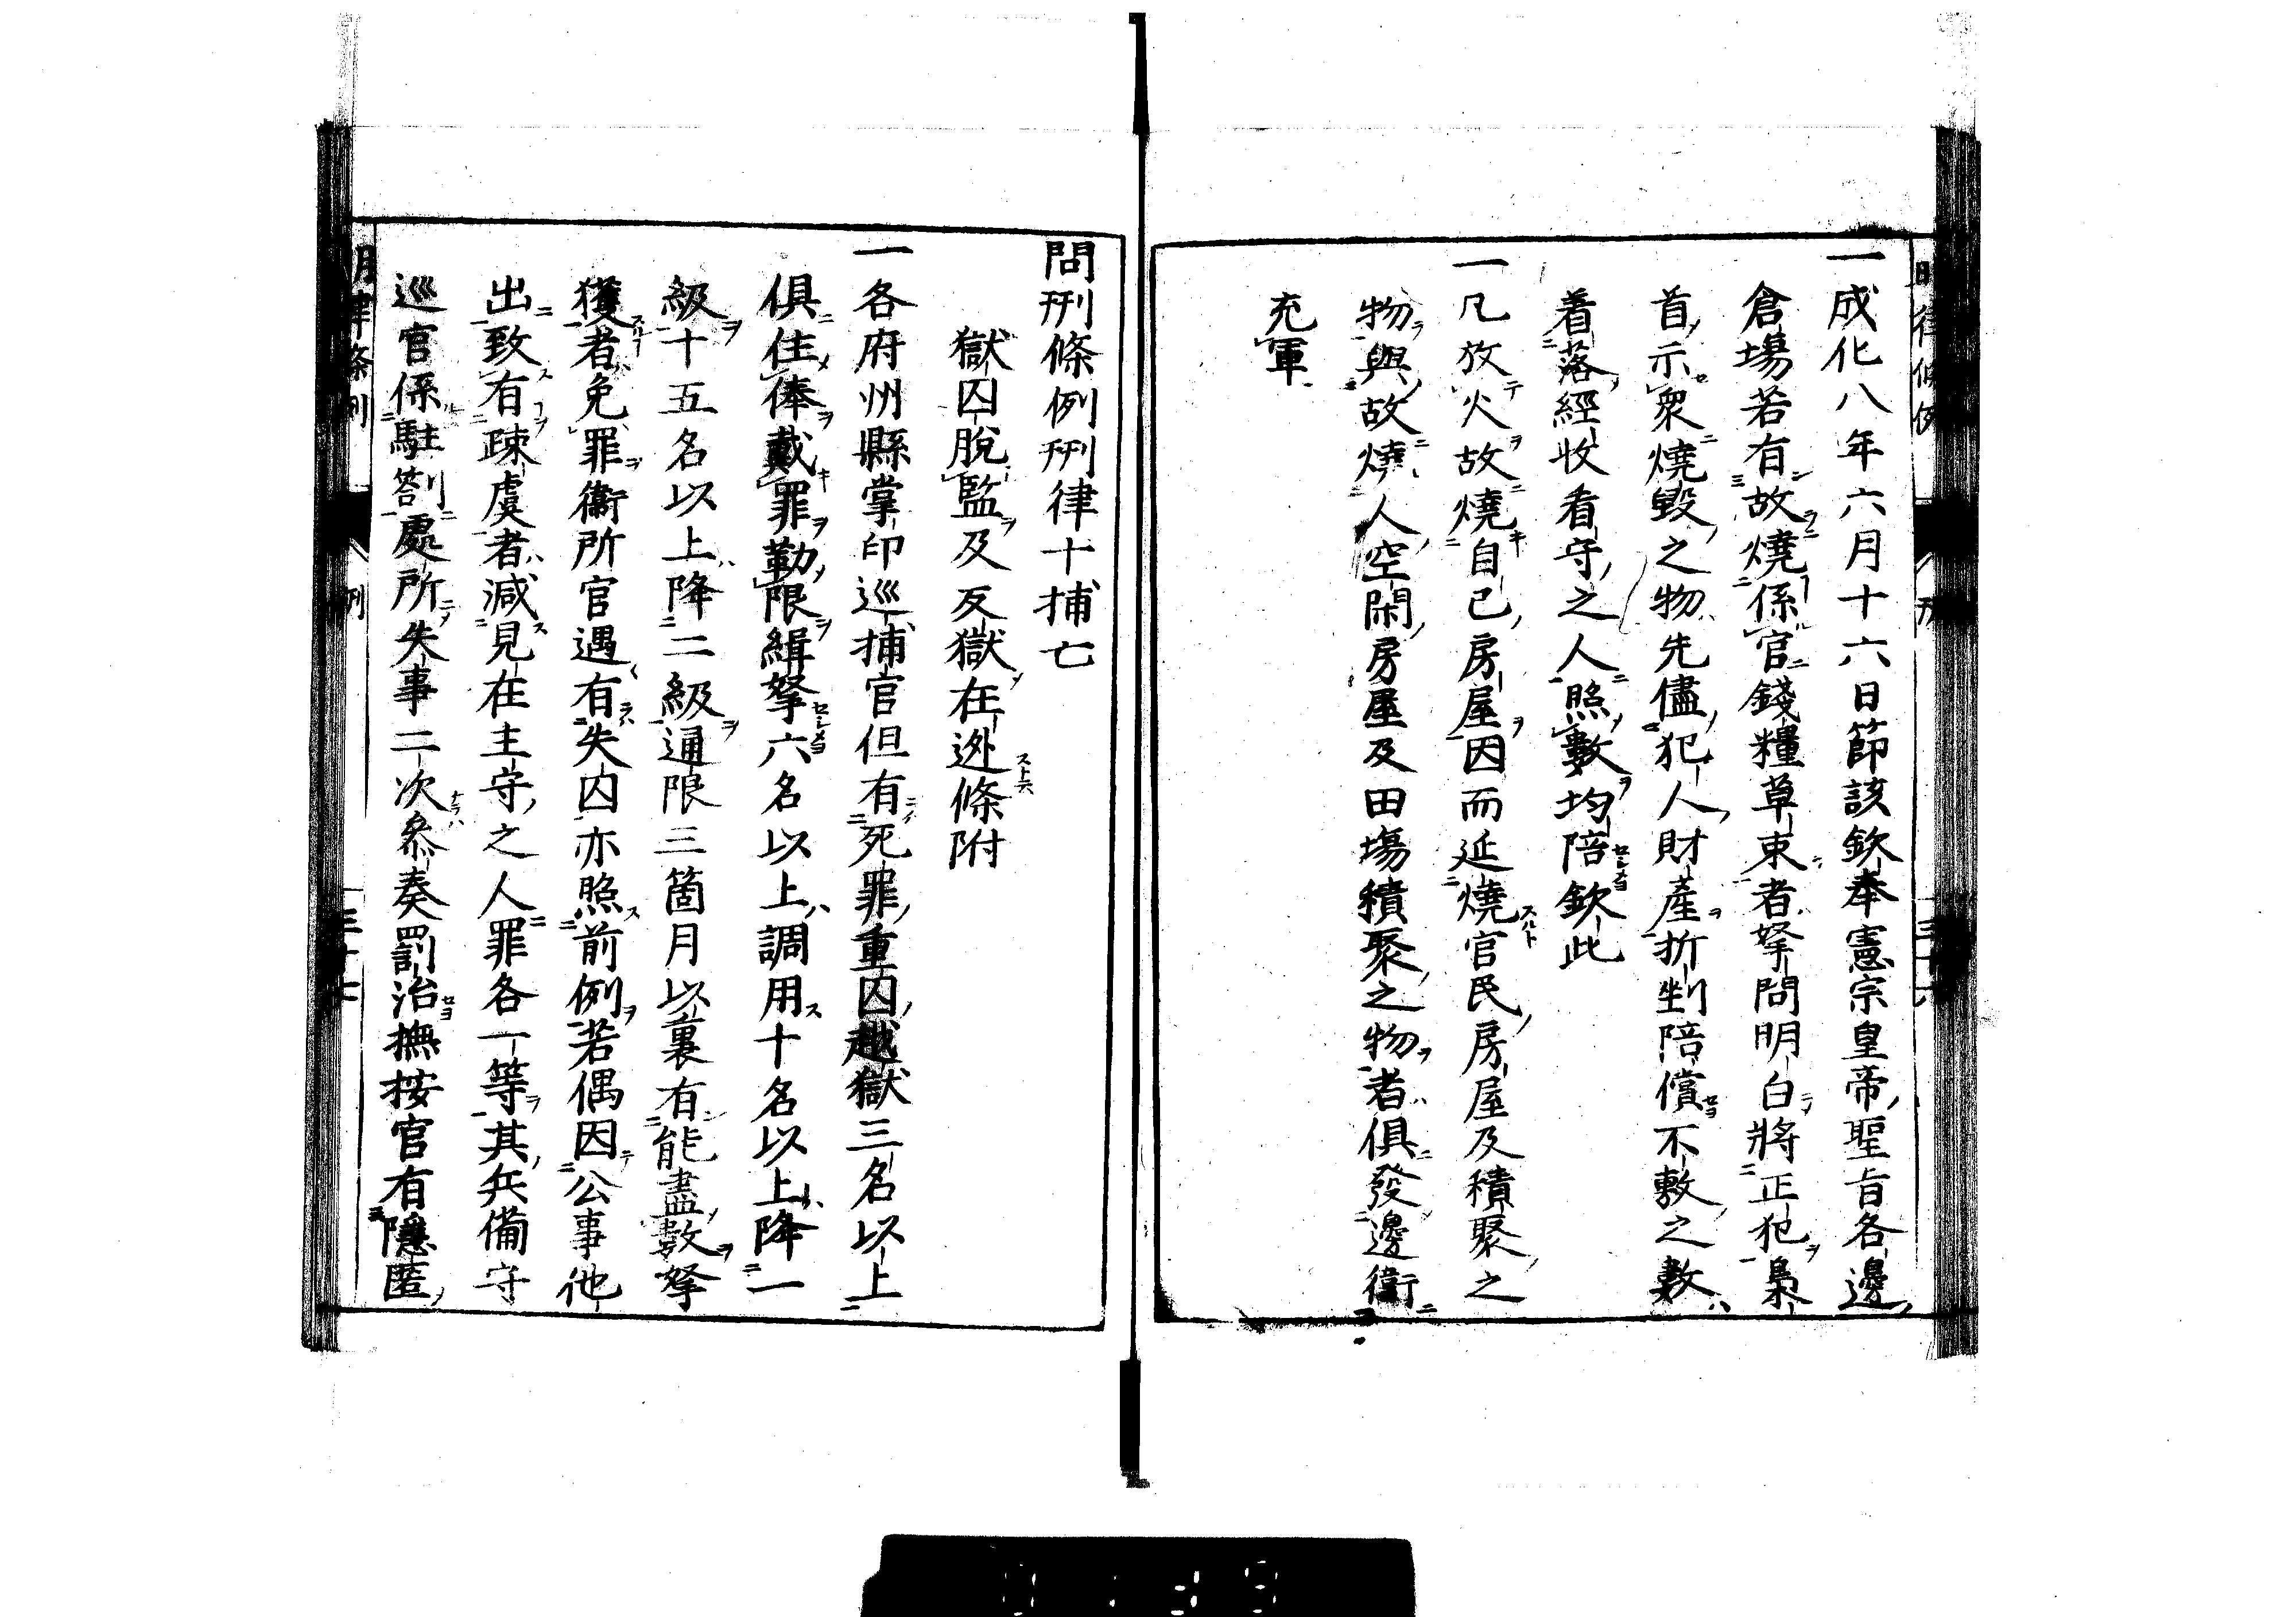 一成化八年六月十六日節該欽奉憲宗皇帝聖旨各邊
倉場若有故燒係官錢糧草束者拏問明白將正犯梟
首示衆燒毀之物先儘犯人財產折剉陪償不敷之數
着落經收看守之人照數均陪欽此
一凡放火故燒自己房屋因而延燒官民房屋及積聚之
物與故燒人空閑房屋及田場積聚之物者俱發邊衛
充軍
問刑條例刑律十捕亡
獄囚脫監及反獄在逃條附
一各府州縣掌印巡捕官但有死罪重囚越獄三名以上
俱住俸戴罪勒限緝拏六名以上調用十名以上降一
級十五名以上降二級通限三箇月以裏有能盡數拏
獲者免罪衛所官遇有失囚亦照前例若偶因公事他
出致有疎虞者減見在主守之人罪各一等其兵備守
巡官係駐劄處所失事二次參奏罰治撫按官有隱匿
明律條例